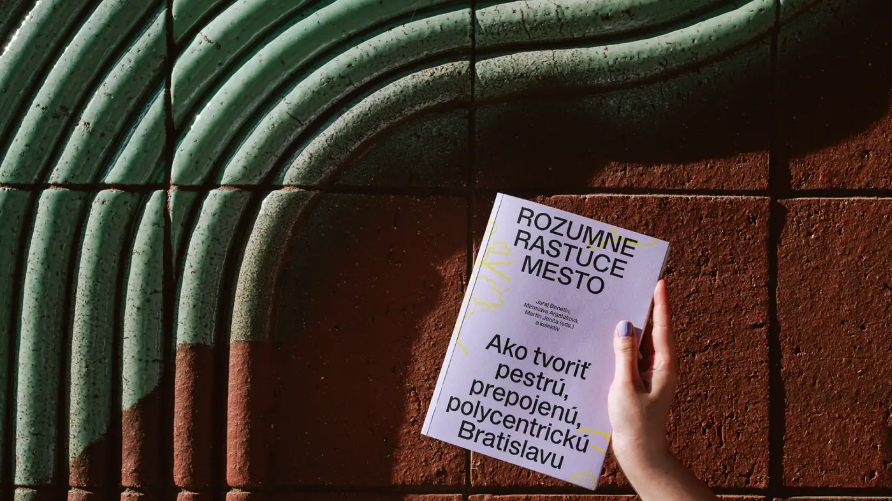 ROZUMNE
RASTÚCE
MESTO
Juraj Benetin,
Martin Jonča (eds.)
a kolektív
Ako tvoriť
pestrú,
prepojenú,
polycentrickú
Bratislavu